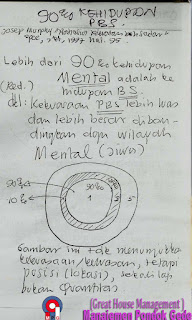 90% KEHIDUPAN
PBS.
Josep Murphy
1997 hal. 95
Lebih dari 90% kehidupan
Mental adalah ke
(Red.) hidupan BS.
Kekuasaan PBS lebih luas
dan lebih besar diban-
dingkan dgn wilayah
Mental (Jiwa)
90%
10%
90%
1
5
Gambar ini tdk menunjukkan
kekuasaan/kuasaan, tetapi
posisi (lokasi), sekali lagi
bukan Quantitas
[Great House Management]
Manajemen Pondok Gede